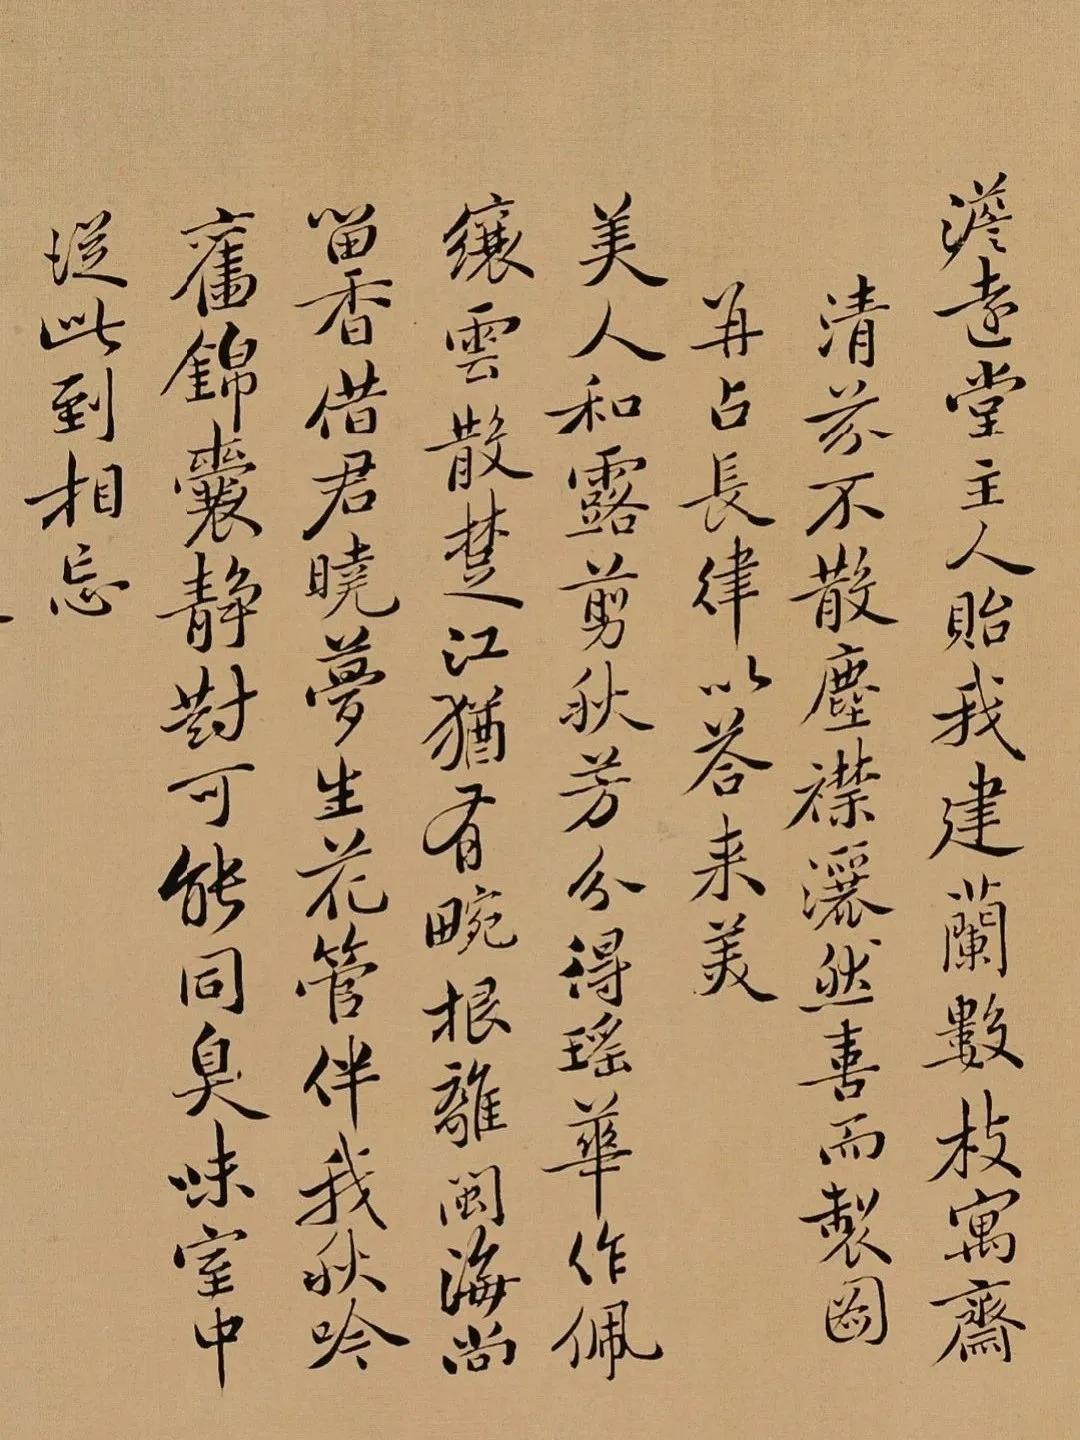 澹遠堂主人貽我建蘭數枝寓齋
清芬不散塵襟灑然喜而製圖
并占長律以答来美
美人和露剪秋芳分得瑤華作佩
纕雲散楚江猶有畹根離閩海尚
留香借君曉夢生花管伴我秋吟
舊錦囊靜對可能同臭味室中
從此到相忘